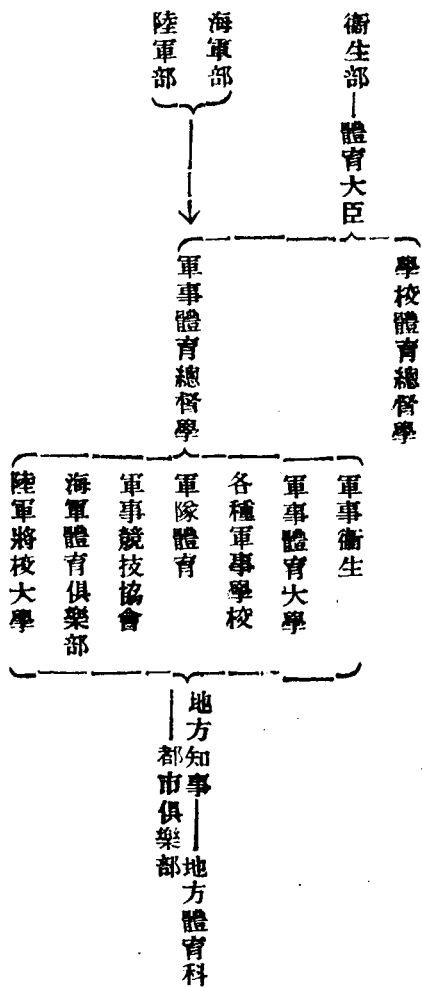 衞生部
體育大臣
海軍部
陸軍部
學校體育總督學
軍事體育總督學
軍事衞生
軍事體育大學
各種軍事學校
軍隊體育
軍事競技協會
海軍體育俱樂部
陸軍將校大學
地方知事
地方體育科
都市俱樂部